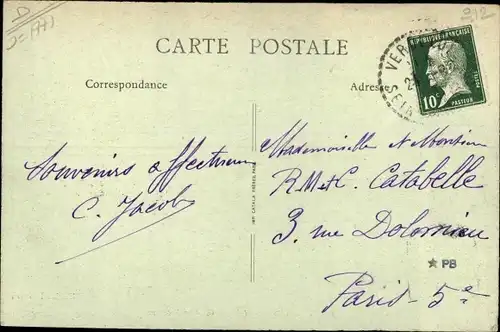 CARTE POSTALE
Correspondance
Adresse
RÉPUBLIQUE FRANÇAISE
POSTES
10c
PASTEUR
Souvenirs affectueux
C. Jacob
IMP. CATALA FRÈRES, PARIS
Mademoiselle et Monsieur
R.M et C. Catabelle
3, rue Dolomieu
Paris - 5e
★ PB